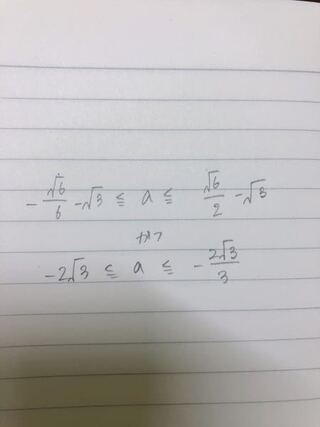 -√6/6 - √3 ≦ a ≦ √6/2 - √3
-2√3 ≦ a ≦ -2√3/3